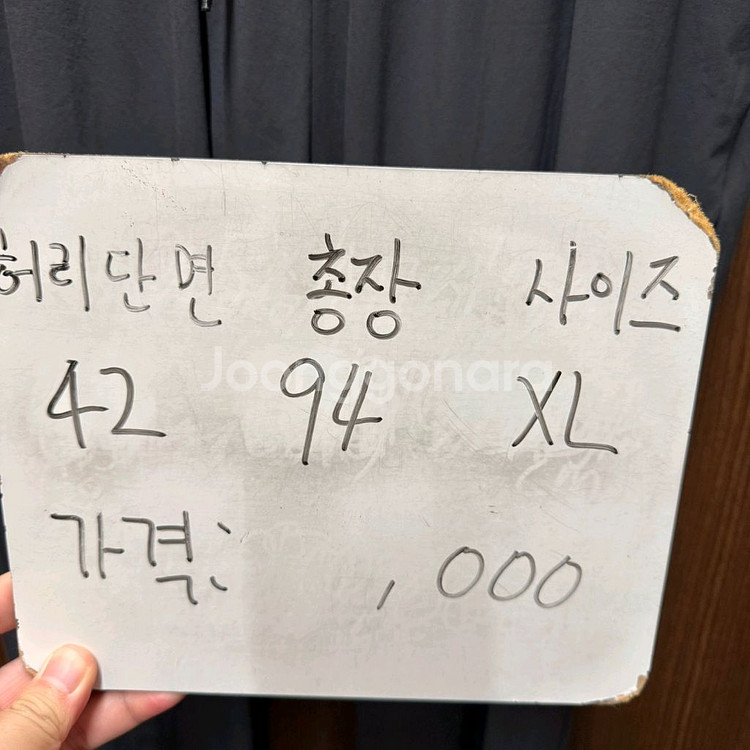 허리단면 총장 사이즈
Joonggonara
42 94 XL
가격: ,000